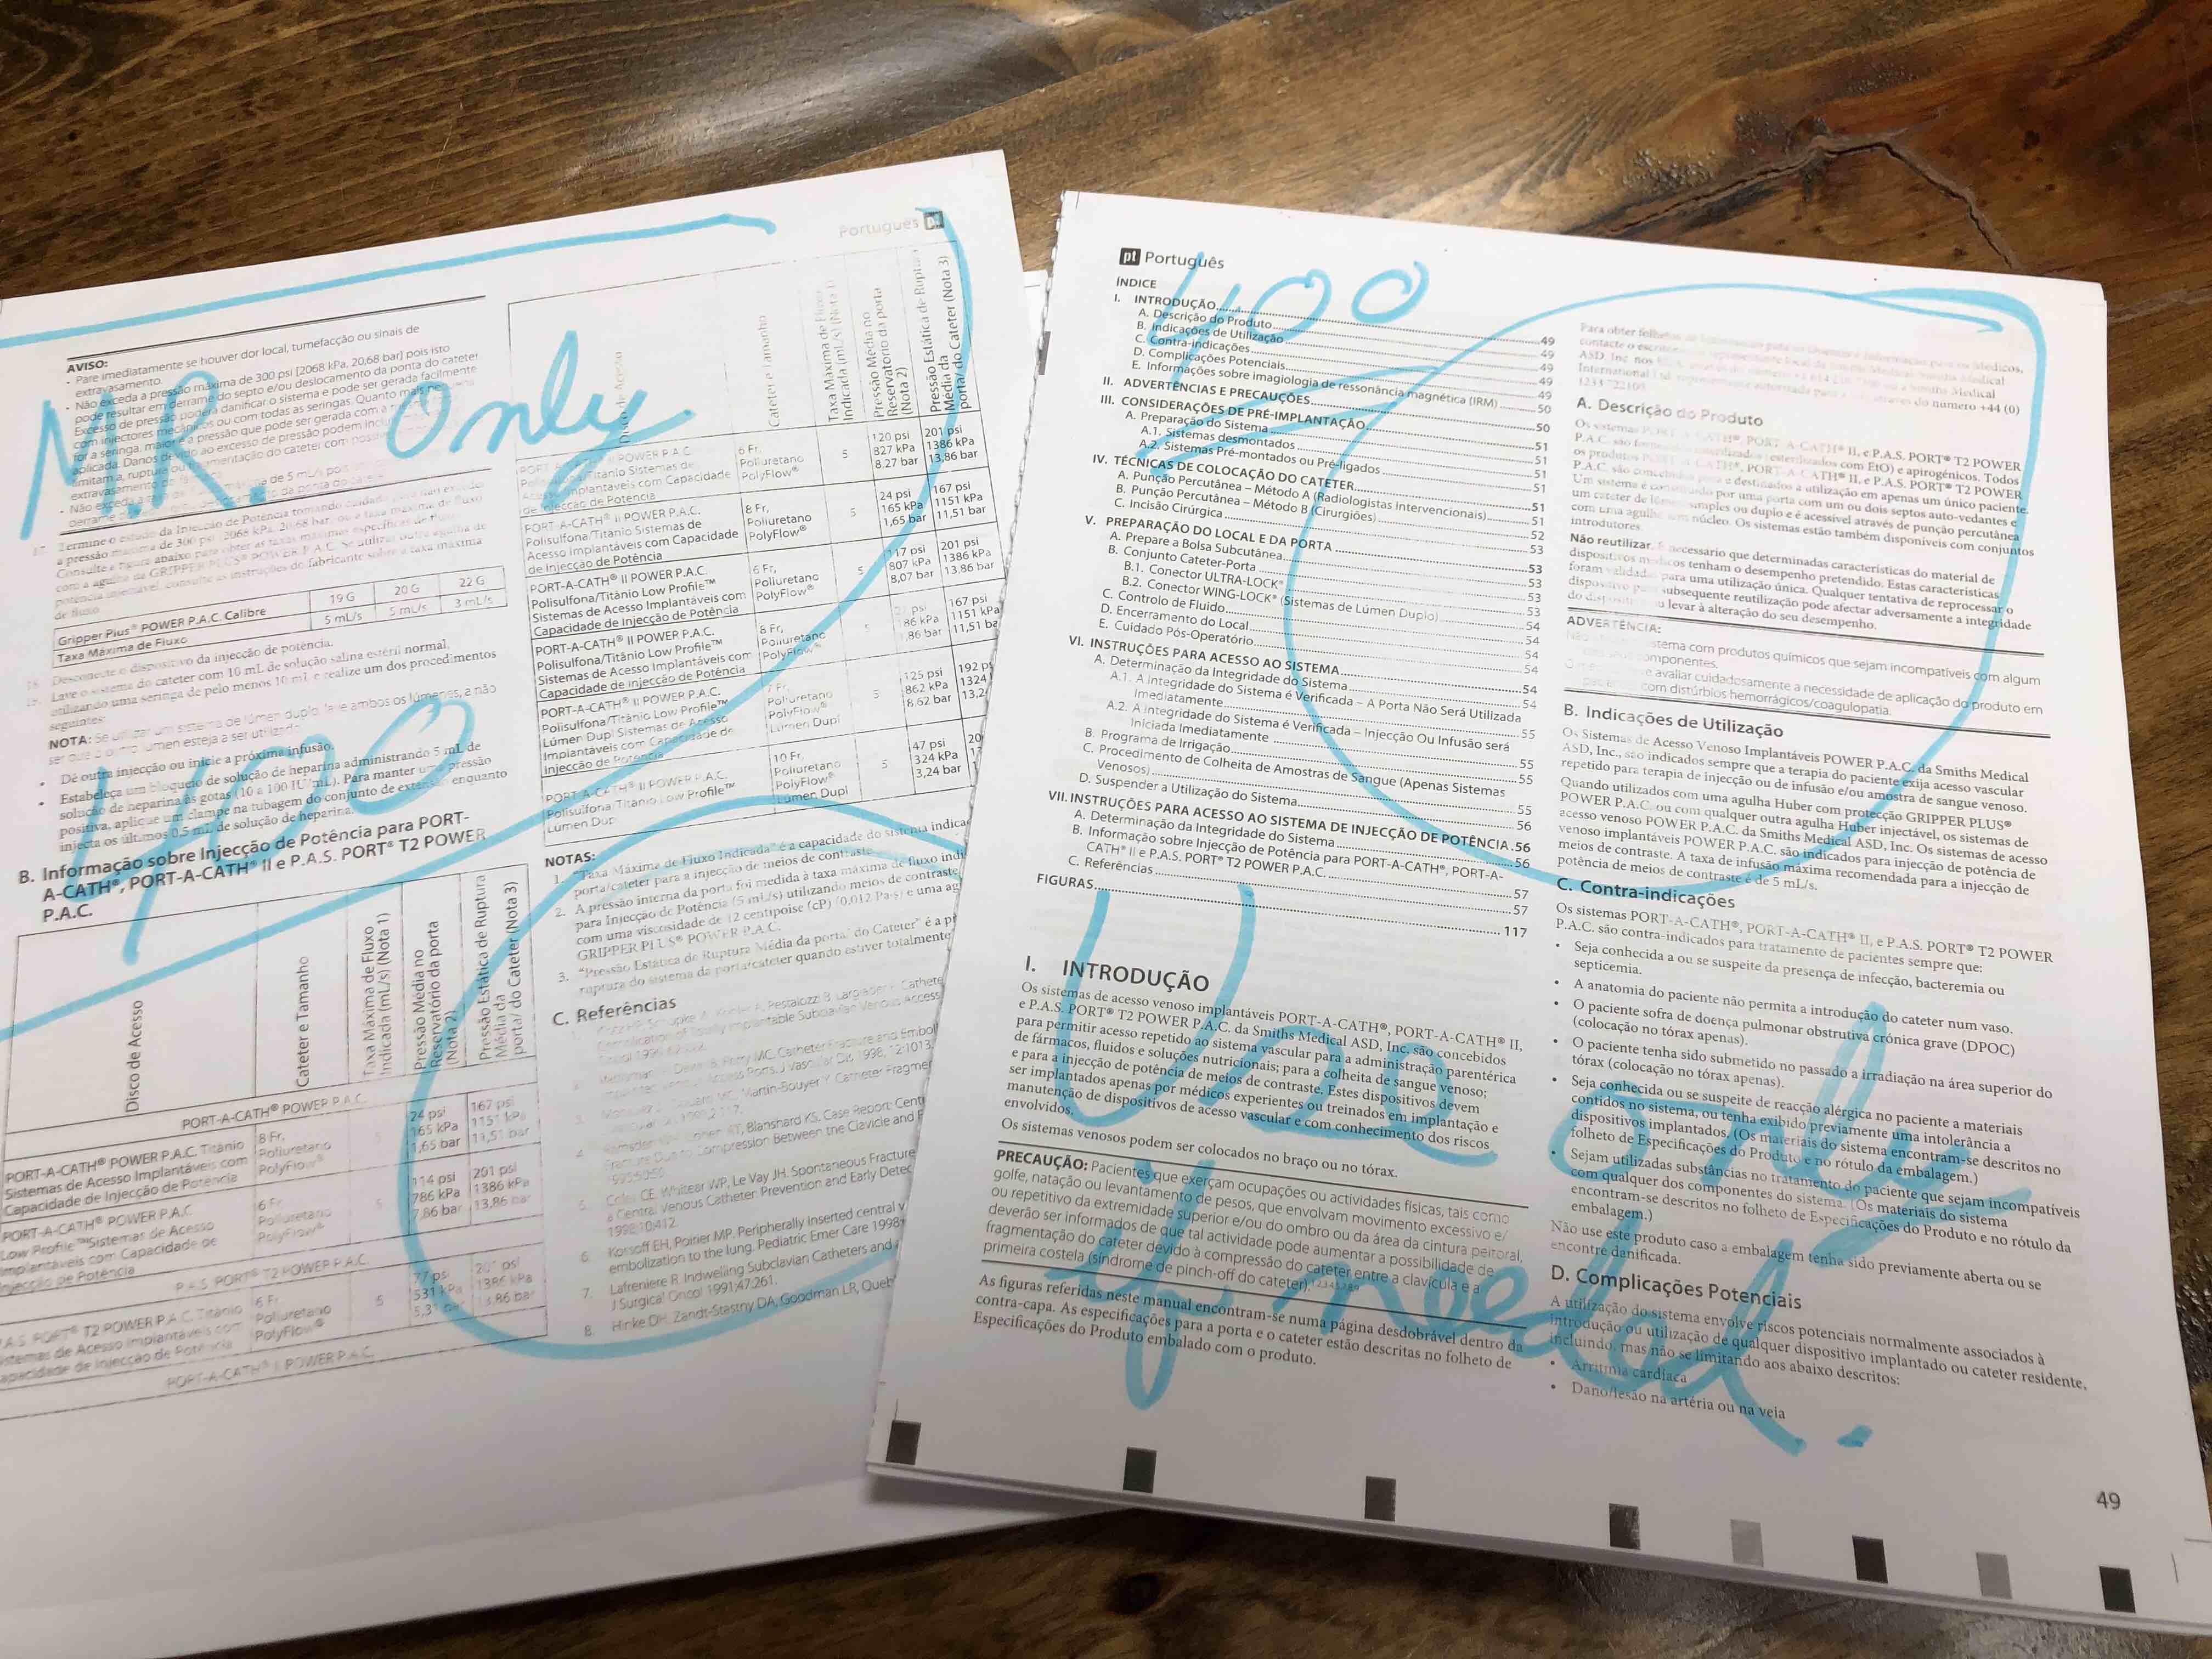 Português pt
AVISO:
- Pare imediatamente se houver dor local, tumefacção ou sinais de
extravasamento.
- Não exceda a pressão máxima de 300 psi [2068 kPa, 20,68 bar] pois isto
pode resultar em derrame do septo e/ou deslocamento da ponta do cateter
Excesso de pressão poderá danificar o sistema e pode ser gerada facilmente
com injectores mecânicos ou com todas as seringas. Quanto mais
for a seringa, maior é a pressão que pode ser gerada com a
aplicada. Danos devido ao excesso de pressão podem
extravasamento
- Não exceda a de 5 mL/s pois
derrame
N.R. only
17. Termine o estudo da Injecção de Potência tomando cuidado para não exceder
a pressão máxima de 300 psi, 2068 kPa, 20,68 bar, ou a taxa máxima de fluxo
Consulte a figura abaixo para obter as taxas máximas específicas de fluxo
com a agulha da GRIPPER PLUS® POWER P.A.C. Se utilizar outra agulha de
potência injectável, consulte as instruções do fabricante sobre a taxa máxima
de fluxo
Gripper Plus® POWER P.A.C. Calibre 19 G 20 G 22 G
Taxa Máxima de Fluxo 5 mL/s 5 mL/s 3 mL/s
18. Desconecte o dispositivo da injecção de potência.
19. Lave o sistema do cateter com 10 mL de solução salina estéril normal,
utilizando uma seringa de pelo menos 10 mL e realize um dos procedimentos
seguintes:
NOTA: Se utilizar um sistema de lúmen duplo, lave ambos os lúmenes, a não
ser que o outro lúmen esteja a ser utilizado
• Dê outra injecção ou inicie a próxima infusão.
• Estabeleça um bloqueio de solução de heparina administrando 5 mL de
solução de heparina às gotas (10 a 100 IU/mL). Para manter uma pressão
positiva, aplique um clampe na tubagem do conjunto de extensão enquanto
injecta os últimos 0,5 mL de solução de heparina.
B. Informação sobre Injecção de Potência para PORT-
A-CATH®, PORT-A-CATH® II e P.A.S. PORT® T2 POWER
P.A.C.
Disco de Acesso
Cateter e Tamanho
Taxa Máxima de Fluxo
Indicada (mL/s) (Nota 1)
Pressão Média no
Reservatório da porta
(Nota 2)
Pressão Estática de Ruptura
Média da
porta/ do Cateter (Nota 3)
PORT-A-CATH® POWER P.A.C.
PORT-A-CATH® POWER P.A.C. Titânio
Sistemas de Acesso Implantáveis com
Capacidade de Injecção de Potência
8 Fr,
Poliuretano
PolyFlow®
5
24 psi
165 kPa
1,65 bar
167 psi
1151 kPa
11,51 bar
PORT-A-CATH® POWER P.A.C.
Low Profile™ Sistemas de Acesso
Implantáveis com Capacidade de
Injecção de Potência
6 Fr,
Poliuretano
PolyFlow®
5
114 psi
786 kPa
7,86 bar
201 psi
1386 kPa
13,86 bar
P.A.S. PORT® T2 POWER P.A.C.
P.A.S. PORT® T2 POWER P.A.C. Titânio
Sistemas de Acesso Implantáveis com
Capacidade de Injecção de Potência
6 Fr,
Poliuretano
PolyFlow®
5
77 psi
531 kPa
5,31 bar
201 psi
1386 kPa
13,86 bar
PORT-A-CATH® II POWER P.A.C.
Disco de Acesso
Cateter e Tamanho
Taxa Máxima de Fluxo
Indicada (mL/s) (Nota 1)
Pressão Média no
Reservatório da porta
(Nota 2)
Pressão Estática de Ruptura
Média da
porta/ do Cateter (Nota 3)
PORT-A-CATH® II POWER P.A.C.
Polisulfona/Titânio Sistemas de
Acesso Implantáveis com Capacidade
de Injecção de Potência
6 Fr,
Poliuretano
PolyFlow®
5
120 psi
827 kPa
8,27 bar
201 psi
1386 kPa
13,86 bar
PORT-A-CATH® II POWER P.A.C.
Polisulfona/Titânio Sistemas de
Acesso Implantáveis com Capacidade
de Injecção de Potência
8 Fr,
Poliuretano
PolyFlow®
5
24 psi
165 kPa
1,65 bar
167 psi
1151 kPa
11,51 bar
PORT-A-CATH® II POWER P.A.C.
Polisulfona/Titânio Low Profile™
Sistemas de Acesso Implantáveis com
Capacidade de Injecção de Potência
6 Fr,
Poliuretano
PolyFlow®
5
117 psi
807 kPa
8,07 bar
201 psi
1386 kPa
13,86 bar
PORT-A-CATH® II POWER P.A.C.
Polisulfona/Titânio Low Profile™
Sistemas de Acesso Implantáveis com
Capacidade de Injecção de Potência
8 Fr,
Poliuretano
PolyFlow®
5
psi
86 kPa
,86 bar
167 psi
1151 kPa
11,51 ba
PORT-A-CATH® II POWER P.A.C.
Polisulfona/Titânio Low Profile™
Lúmen Dupi Sistemas de Acesso
Implantáveis com Capacidade de
Injecção de Potência
7 Fr,
Poliuretano
PolyFlow®
Lúmen Dupi
5
125 psi
862 kPa
8,62 bar
192 p
1324
13,2
PORT-A-CATH® II POWER P.A.C.
Polisulfona/Titânio Low Profile™
Lúmen Dupi
10 Fr,
Poliuretano
PolyFlow®
Lúmen Dupi
5
47 psi
324 kPa
3,24 bar
20
NOTAS:
1. "Taxa Máxima de Fluxo Indicada" é a capacidade do sistema indica
porta/cateter para a injecção de meios de contraste.
2. A pressão interna da porta foi medida à taxa máxima de fluxo indi
para Injecção de Potência (5 mL/s) utilizando meios de contraste
com uma viscosidade de 12 centipoise (cP) (0,012 Pa·s) e uma ag
GRIPPER PLUS® POWER P.A.C.
3. "Pressão Estática de Ruptura Média da porta/ do Cateter" é a p
ruptura do sistema da porta/cateter quando estiver totalmente
C. Referências
Pestalozzi B, Largiader F. Cathete
Complication of Totally Implantable Subclavian Venous Access
Perry MC. Catheter Fracture and Embol
Access Ports. J Vascular Dis. 1998; 12:1013
Martin-Bouyer Y. Catheter Fragmen
4. Ramsden Cohen AT, Blanshard KS. Case Report: Cent
Fracture Due to Compression Between the Clavicle and F
5. Coles CE, Whitear WP, Le Vay JH. Spontaneous Fracture
a Central Venous Catheter: Prevention and Early Detec
1998;10:412.
6. Kossoff EH, Poirier MP. Peripherally inserted central v
embolization to the lung. Pediatric Emer Care 1998;
7. Lafreniere R. Indwelling Subclavian Catheters and
J Surgical Oncol 1991;47:261.
8. Hinke DH, Zandt-Stastny DA, Goodman LR, Queb
400
pt Português
ÍNDICE
I. INTRODUÇÃO 49
A. Descrição do Produto 49
B. Indicações de Utilização 49
C. Contra-indicações 49
D. Complicações Potenciais 49
E. Informações sobre imagiologia de ressonância magnética (IRM) 50
II. ADVERTÊNCIAS E PRECAUÇÕES 50
III. CONSIDERAÇÕES DE PRÉ-IMPLANTAÇÃO 51
A. Preparação do Sistema 51
A.1. Sistemas desmontados 51
A.2. Sistemas Pré-montados ou Pré-ligados 51
IV. TÉCNICAS DE COLOCAÇÃO DO CATETER 51
A. Punção Percutânea – Método A (Radiologistas Intervencionais) 51
B. Punção Percutânea – Método B (Cirurgiões) 52
C. Incisão Cirúrgica 53
V. PREPARAÇÃO DO LOCAL E DA PORTA 53
A. Prepare a Bolsa Subcutânea 53
B. Conjunto Cateter-Porta 53
B.1. Conector ULTRA-LOCK® 53
B.2. Conector WING-LOCK® (Sistemas de Lúmen Duplo) 54
C. Controlo de Fluido 54
D. Encerramento do Local 54
E. Cuidado Pós-Operatório 54
VI. INSTRUÇÕES PARA ACESSO AO SISTEMA 54
A. Determinação da Integridade do Sistema 54
A.1. A Integridade do Sistema é Verificada – A Porta Não Será Utilizada
Imediatamente 55
A.2. A Integridade do Sistema é Verificada – Injecção Ou Infusão será
Iniciada Imediatamente 55
B. Programa de Irrigação 55
C. Procedimento de Colheita de Amostras de Sangue (Apenas Sistemas
Venosos) 55
D. Suspender a Utilização do Sistema 56
VII. INSTRUÇÕES PARA ACESSO AO SISTEMA DE INJECÇÃO DE POTÊNCIA .56
A. Determinação da Integridade do Sistema 56
B. Informação sobre Injecção de Potência para PORT-A-CATH®, PORT-A-
CATH® II e P.A.S. PORT® T2 POWER P.A.C. 57
C. Referências 57
FIGURAS 117
I. INTRODUÇÃO
Os sistemas de acesso venoso implantáveis PORT-A-CATH®, PORT-A-CATH® II,
e P.A.S. PORT® T2 POWER P.A.C. da Smiths Medical ASD, Inc. são concebidos
para permitir acesso repetido ao sistema vascular para a administração parentérica
de fármacos, fluidos e soluções nutricionais; para a colheita de sangue venoso;
e para a injecção de potência de meios de contraste. Estes dispositivos devem
ser implantados apenas por médicos experientes ou treinados em implantação e
manutenção de dispositivos de acesso vascular e com conhecimento dos riscos
envolvidos.
Os sistemas venosos podem ser colocados no braço ou no tórax.
PRECAUÇÃO: Pacientes que exerçam ocupações ou actividades físicas, tais como
golfe, natação ou levantamento de pesos, que envolvam movimento excessivo e/
ou repetitivo da extremidade superior e/ou do ombro ou da área da cintura peitoral,
deverão ser informados de que tal actividade pode aumentar a possibilidade de
fragmentação do cateter devido à compressão do cateter entre a clavícula e a
primeira costela (síndrome de pinch-off do cateter).
As figuras referidas neste manual encontram-se numa página desdobrável dentro da
contra-capa. As especificações para a porta e o cateter estão descritas no folheto de
Especificações do Produto embalado com o produto.
400
Use only
if needed.
Para obter folhetos
contacte o escritório
ASD, Inc. nos
International Ltd. através do número +44 (0)
1233 722100
A. Descrição do Produto
Os sistemas PORT-A-CATH®, PORT-A-CATH® II, e P.A.S. PORT® T2 POWER
P.A.C. são fornecidos esterilizados (esterilizados com EtO) e apirogénicos. Todos
os produtos PORT-A-CATH®, PORT-A-CATH® II, e P.A.S. PORT® T2 POWER
P.A.C. são concebidos para e destinados a utilização em apenas um único paciente.
Um sistema é constituído por uma porta com um ou dois septos auto-vedantes e
um cateter de lúmen simples ou duplo e é acessível através de punção percutânea
com uma agulha sem núcleo. Os sistemas estão também disponíveis com conjuntos
introdutores.
Não reutilizar. É necessário que determinadas características do material de
dispositivos médicos tenham o desempenho pretendido. Estas características
foram validadas para uma utilização única. Qualquer tentativa de reprocessar o
dispositivo para subsequente reutilização pode afectar adversamente a integridade
do dispositivo ou levar à alteração do seu desempenho.
ADVERTÊNCIA:
Não sistema com produtos químicos que sejam incompatíveis com algum
componentes.
avaliar cuidadosamente a necessidade de aplicação do produto em
com distúrbios hemorrágicos/coagulopatia.
B. Indicações de Utilização
Os Sistemas de Acesso Venoso Implantáveis POWER P.A.C. da Smiths Medical
ASD, Inc., são indicados sempre que a terapia do paciente exija acesso vascular
repetido para terapia de injecção ou de infusão e/ou amostra de sangue venoso.
Quando utilizados com uma agulha Huber com protecção GRIPPER PLUS®
POWER P.A.C. ou com qualquer outra agulha Huber injectável, os sistemas de
acesso venoso POWER P.A.C. da Smiths Medical ASD, Inc. Os sistemas de acesso
venoso implantáveis POWER P.A.C. são indicados para injecção de potência de
meios de contraste. A taxa de infusão máxima recomendada para a injecção de
potência de meios de contraste é de 5 mL/s.
C. Contra-indicações
Os sistemas PORT-A-CATH®, PORT-A-CATH® II, e P.A.S. PORT® T2 POWER
P.A.C. são contra-indicados para tratamento de pacientes sempre que:
• Seja conhecida a ou se suspeite da presença de infecção, bacteremia ou
septicemia.
• A anatomia do paciente não permita a introdução do cateter num vaso.
• O paciente sofra de doença pulmonar obstrutiva crónica grave (DPOC)
(colocação no tórax apenas).
• O paciente tenha sido submetido no passado a irradiação na área superior do
tórax (colocação no tórax apenas).
• Seja conhecida ou se suspeite de reacção alérgica no paciente a materiais
contidos no sistema, ou tenha exibido previamente uma intolerância a
dispositivos implantados. (Os materiais do sistema encontram-se descritos no
folheto de Especificações do Produto e no rótulo da embalagem.)
• Sejam utilizadas substâncias no tratamento do paciente que sejam incompatíveis
com qualquer dos componentes do sistema. (Os materiais do sistema
encontram-se descritos no folheto de Especificações do Produto e no rótulo da
embalagem.)
Não use este produto caso a embalagem tenha sido previamente aberta ou se
encontre danificada.
D. Complicações Potenciais
A utilização do sistema envolve riscos potenciais normalmente associados à
introdução ou utilização de qualquer dispositivo implantado ou cateter residente,
incluindo, mas não se limitando aos abaixo descritos:
• Arritmia cardíaca
• Dano/lesão na artéria ou na veia
49